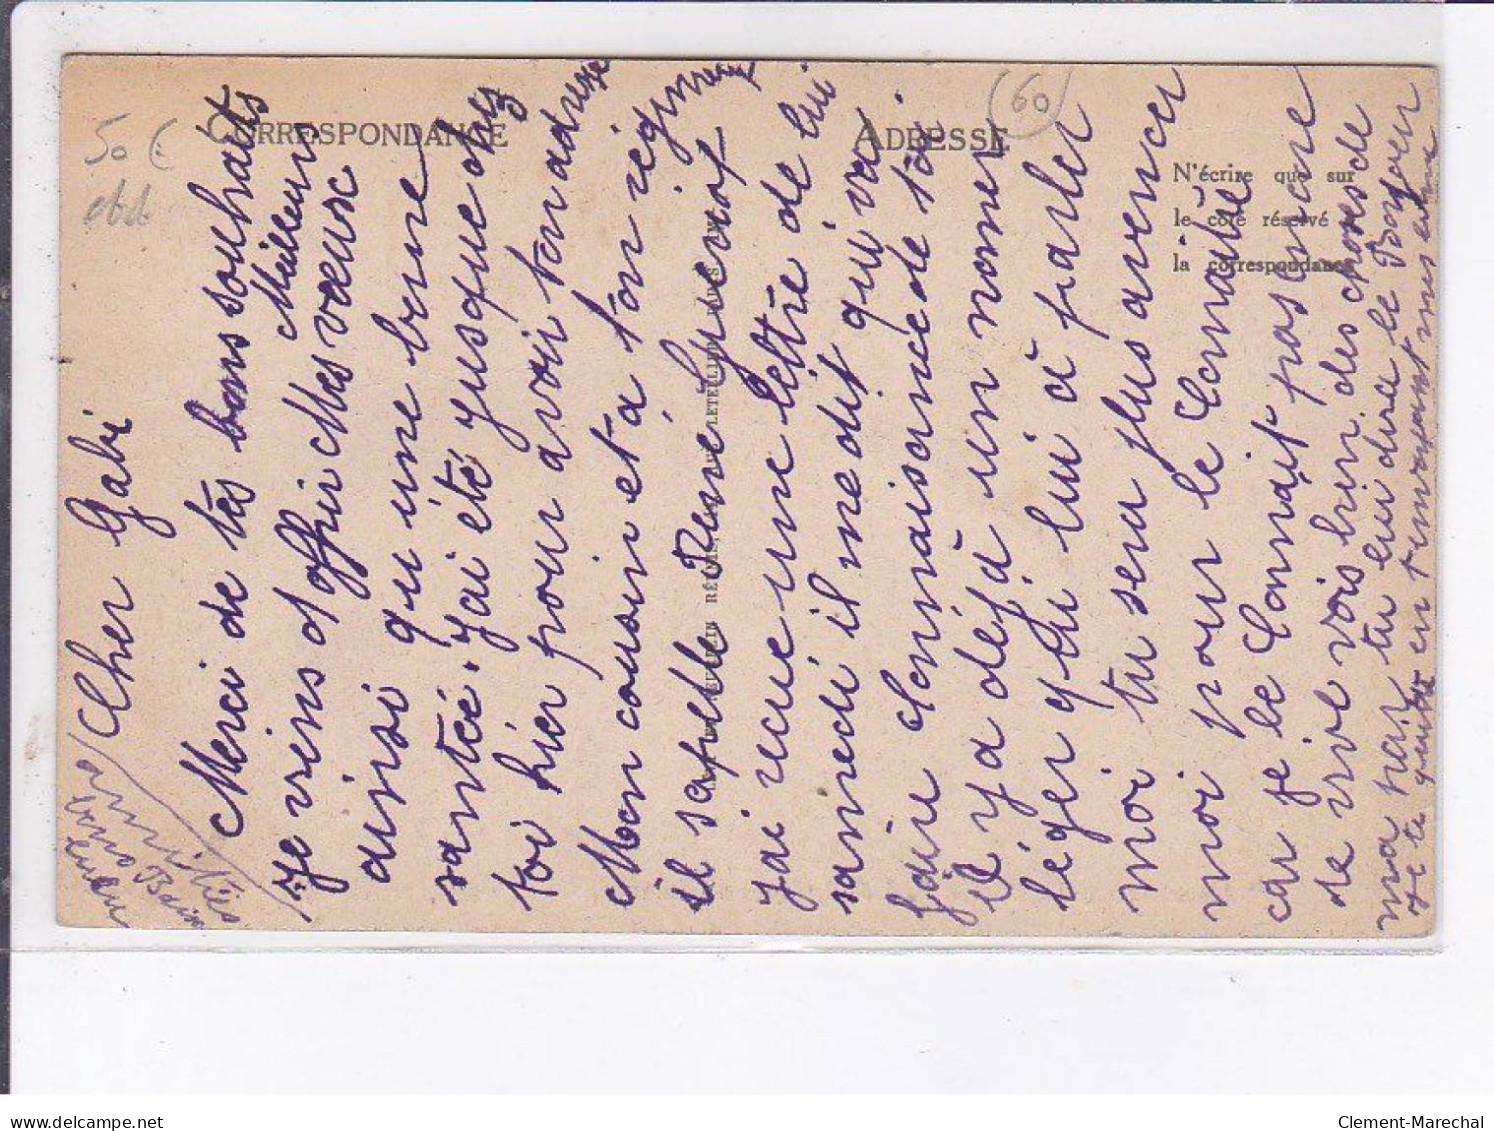 50 €
CORRESPONDANCE
ADRESSE
60
N'écrire que sur
le côté réservé à
la correspondance
Cher Gabi
Merci de tes bons souhaits
je viens d'offrir Mes meilleurs vœux
ainsi qu'une bonne
santée. J'ai été jusque chez
toi hier pour avoir ton adresse
Mon cousin est à ton régiment
il sapelle René Guérif
j'ai reçue une lettre de lui
samedi il me dit qu'il va
faire connaisance de toi.
il y a déjà un nomer
Léger qui lui a parler
moi tu sera plus avencer
moi pour le Connaître
car je le Connait pas encore
de vive vois bien des choses de
ma par tu lui dira le Bonjour
Je te quitte en t'envoyant mes
amitiés
bons Baisers
delcampe.net
Clement-Marechal